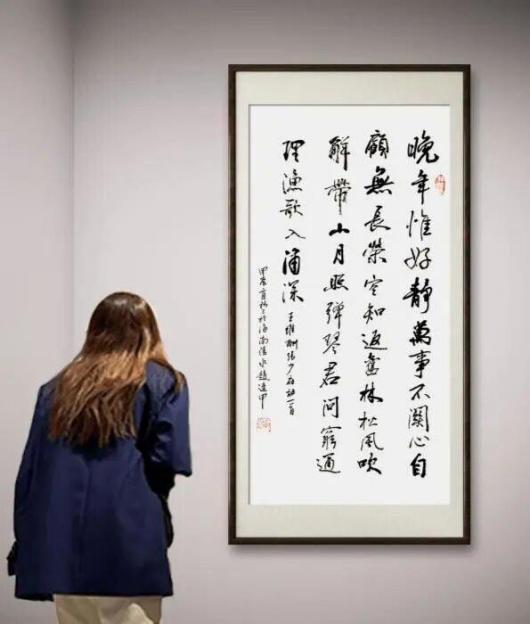 晚年惟好靜萬事不關心自
顧無長策空知返舊林松風吹
解帶山月照彈琴君問窮通
理漁歌入浦深 王維酬張少府詩一首
甲辰 於海南陵水趙